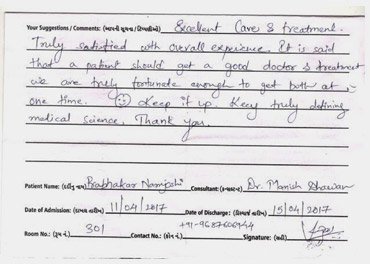 Your Suggestions / Comments: (આપની સૂચના / ટિપ્પણીઓ) Excellent Care & treatment.
Truly satisfied with overall experience. It is said
that a patient should get a good doctor & treatment
we are truly fortunate enough to get both at
one time. ☺ Keep it up. Keep truly defining
medical science. Thank you.
Patient Name: (દર્દીનું નામ) Prabhakar Namjoshi Consultant: Dr. Manish
Date of Admission: (દાખલ તારીખ) 11/04/2017 Date of Discharge: 15/04/2017
Room No.: (રૂમ નં.) 301 Contact No.: (ફોન નં.) +91-9687606944 Signature: (સહી)